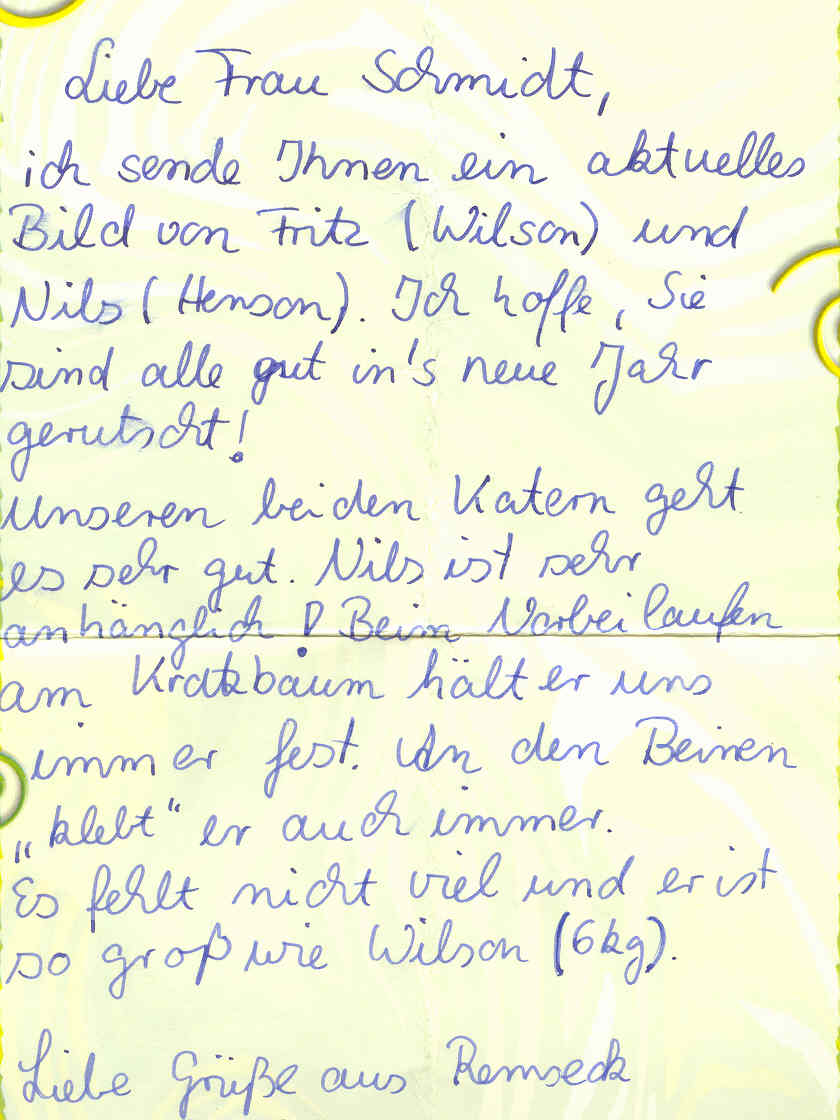 Liebe Frau Schmidt,
ich sende Ihnen ein aktuelles
Bild von Fritz (Wilson) und
Nils (Henson). Ich hoffe, Sie
sind alle gut in's neue Jahr
gerutscht!
Unseren beiden Katern geht
es sehr gut. Nils ist sehr
anhänglich! Beim Vorbeilaufen
am Kratzbaum hält er uns
immer fest. An den Beinen
„klebt“ er auch immer.
Es fehlt nicht viel und er ist
so groß wie Wilson (6kg).
Liebe Grüße aus Remseck